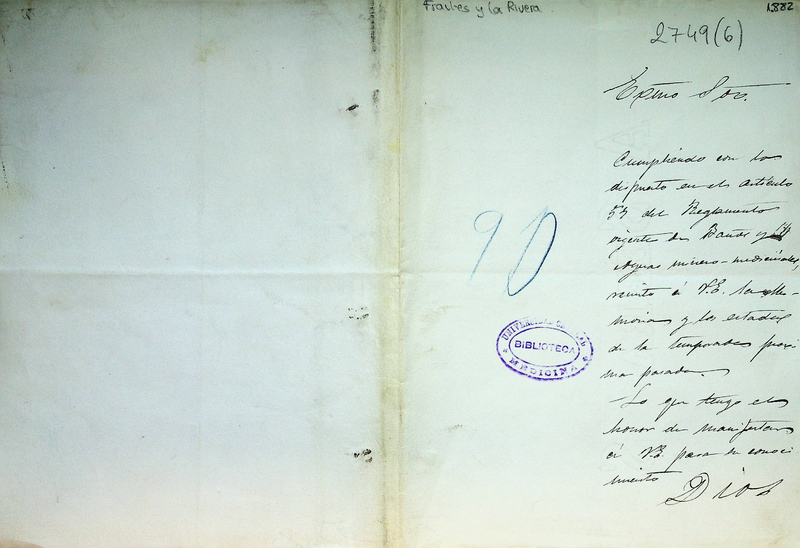 Frailes y la Rivera
1.882
2749(6)
Exmo Sor.
Cumpliendo con lo
dispuesto en el artículo
55 del Reglamento
vigente de Baños y
Aguas minero-medicinales,
remito á V.E. la Me-
moria y los estados
de la temporada proxi
ma pasada.
Lo que tengo el
honor de manifestar
á V.E. para su conoci
miento
Dios
90
UNIVERSIDAD
BIBLIOTECA
MEDICINA